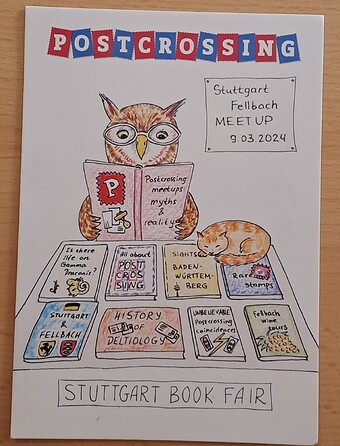 POSTCROSSING
Stuttgart
Fellbach
MEET UP
9.03.2024
P
Postcrossing
meetups:
myths
&
reality
Is there
life on
Gamma
Draconis?
All about
POST
CROS
SING
SIGHTS
BADEN-
WÜRTTEM-
BERG
Rare
stamps
STUTTGART
&
FELLBACH
HISTORY
OF
DELTIOLOGY
UNBELIEVABLE
Postcrossing
coincidences
Fellbach
wine
tours
STUTTGART BOOK FAIR